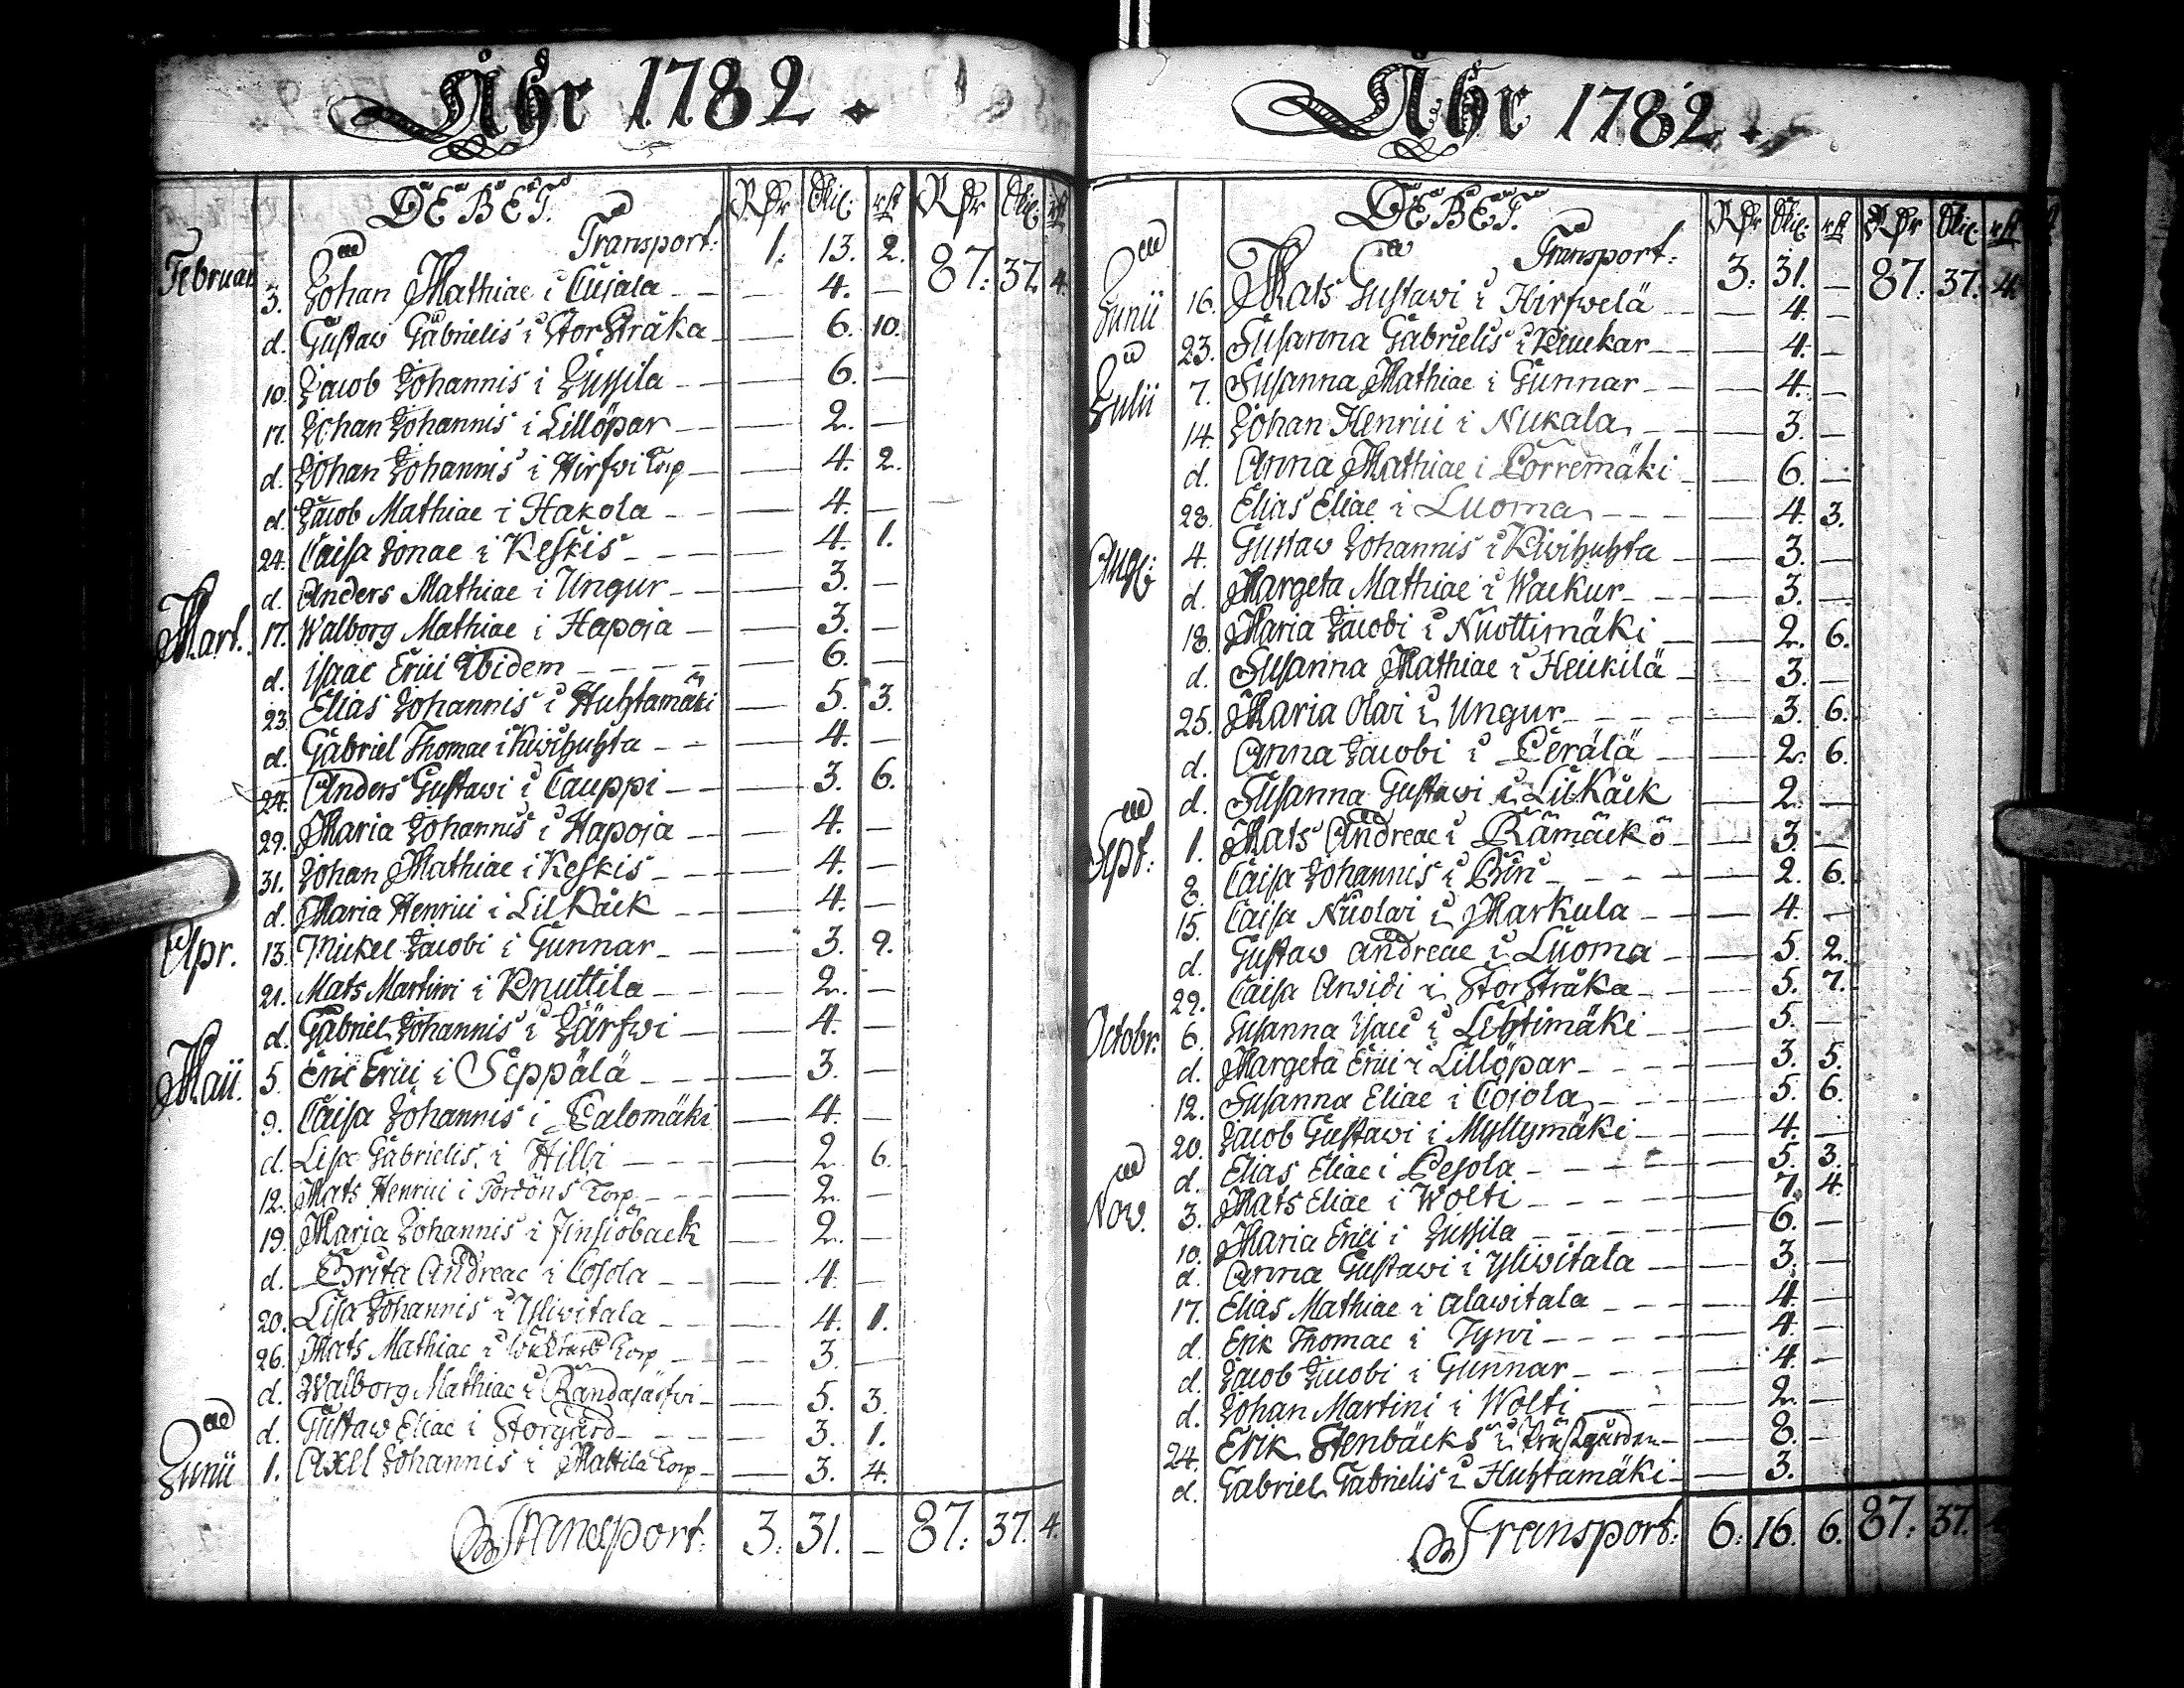 Åhr 1782.
DEBET. RDr Skil: rst RDr Skil: rst
Transport: 1. 13. 2. 87. 37. 4.
Februar 3. Johan Mathiae i Cujala — 4. —
d. Gustaw Gabrielis i StorStråka — 6. 10.
10. Jacob Johannis i Jussila — 6. —
17. Johan Johannis i Lillöpar — 2. —
d. Johan Johannis i Hirfwi Torp — 4. 2.
d. Jacob Mathiae i Hakola — 4. —
24. Caisa Jonae i Keskis — 4. 1.
d. Anders Mathiae i Ungur — 3. —
Mart. 17. Walborg Mathiae i Hapoja — 3. —
d. Isaac Erici Ibidem — 6. —
23. Elias Johannis i Huhtamäki — 5. 3.
d. Gabriel Thomae i Kiwihuhta — 4. —
24. Anders Gustawi i Cauppi — 3. 6.
29. Maria Johannis i Hapoja — 4. —
31. Johan Mathiae i Keskis — 4. —
d. Maria Henrici i LilKåck — 4. —
Apr. 13. Mickel Jacobi i Gunnar — 3. 9.
21. Mats Martini i Knuttila — 2. —
d. Gabriel Johannis i Järfwi — 4. —
Maii. 5. Eric Erici i Seppälä — 3. —
9. Caisa Johannis i Palomäki — 4. —
d. Lisa Gabrielis i Hilli — 2. 6.
12. Mats Henrici i Tordöns Torp — 2. —
19. Maria Johannis i Finsiöbäck — 2. —
d. Brita Andreae i Cosola — 4. —
20. Lisa Johannis i Yliwitala — 4. 1.
26. Mats Mathiae i Torp — 3. —
d. Walborg Mathiae i Randajärfwi — 5. 3.
d. Gustaw Eliae i Storgård — 3. 1.
Junii 1. Axell Johannis i Mattila Torp — 3. 4.
Transport: 3. 31. — 87. 37. 4.
Åhr 1782.
DEBET. RDr Skil: rst RDr Skil: rst
Transport: 3. 31. — 87. 37. 4.
Junii 16. Mats Gustawi i Hirfwelä — 4. —
23. Susanna Gabrielis i Keuckar — 4. —
Julii 7. Susanna Mathiae i Gunnar — 4. —
14. Johan Henrici i Nukala — 3. —
d. Anna Mathiae i Porremäki — 6. —
28. Elias Eliae i Luoma — 4. 3.
Aug: 4. Gustaw Johannis i Kiwihuhta — 3. —
d. Margeta Mathiae i Wackur — 3. —
18. Maria Jacobi i Nuottimäki — 2. 6.
d. Susanna Mathiae i Heickilä — 3. —
25. Maria Olai i Ungur — 3. 6.
d. Anna Jacobi i Perälä — 2. 6.
d. Susanna Gustawi i LilKåck — 2. —
Sept: 1. Mats Andreae i Rämäckö — 3. —
8. Caisa Johannis i — 2. 6.
15. Caisa Nicolai i Markula — 4. —
d. Gustaw Andreae i Luoma — 5. 2.
29. Caisa Arvidi i StorStråka — 5. 7.
Octobr. 6. Susanna Isaci i Lehtimäki — 5. —
d. Margeta Erici i Lillöpar — 3. 5.
12. Susanna Eliae i Cojola — 5. 6.
20. Jacob Gustawi i Myllymäki — 4. —
d. Elias Eliae i Pesola — 5. 3.
Nov. 3. Mats Eliae i Wolti — 7. 4.
10. Maria Erici i Jussila — 6. —
d. Anna Gustawi i Yliwitala — 3. —
17. Elias Mathiae i Alawitala — 4. —
d. Erik Thomae i Tyrwi — 4. —
d. Jacob Jacobi i Gunnar — 4. —
d. Johan Martini i Wolti — 2. —
24. Erik Stenbäcks i Prästgården — 8. —
d. Gabriel Gabrielis i Huhtamäki — 3.
Transport: 6. 16. 6. 87. 37.